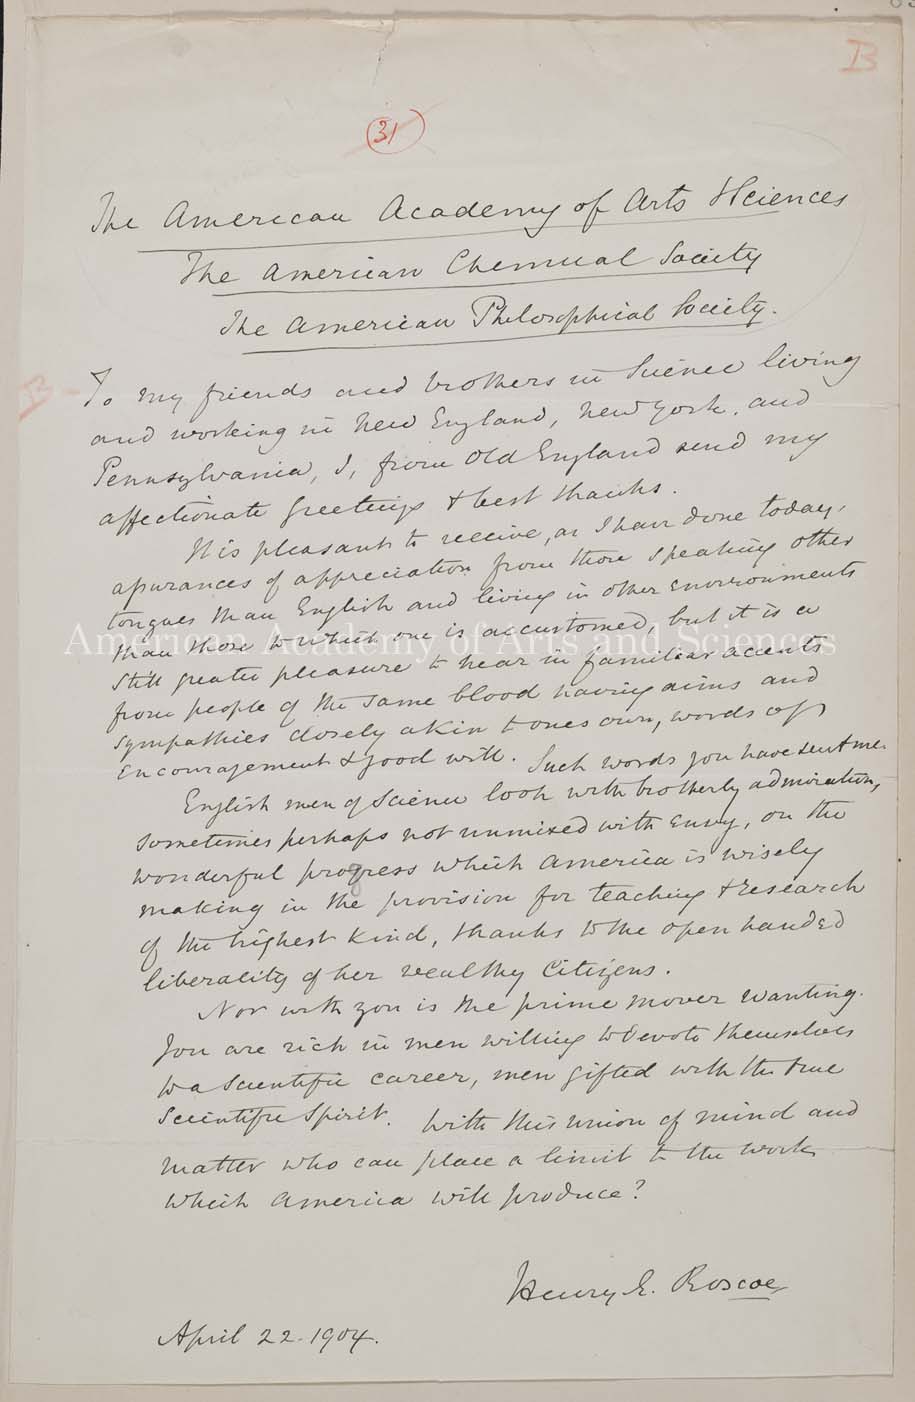 B
31
The American Academy of Arts & Sciences
The American Chemical Society
The American Philosophical Society.
B -
To my friends and brothers in Science living
and working in New England, New York, and
Pennsylvania, I, from Old England send my
affectionate greetings & best thanks.
It is pleasant to receive, as I have done today,
assurances of appreciation from those speaking other
tongues than English and living in other environments
than those to which one is accustomed, but it is a
American Academy of Arts and Sciences
still greater pleasure to hear in familiar accents
from people of the same blood having aims and
sympathies closely akin to ones own, words of
encouragement & good will. Such words you have sent me.
English men of Science look with brotherly admiration,
sometimes perhaps not unmixed with envy, on the
wonderful progress which America is wisely
making in the provision for teaching & research
of the highest kind, thanks to the open handed
liberality of her wealthy citizens.
Nor with you is the prime mover wanting.
You are rich in men willing to devote themselves
to a scientific career, men gifted with the true
scientific spirit. With this union of mind and
matter who can place a limit to the work
which America will produce?
Henry E. Roscoe
April 22. 1904.